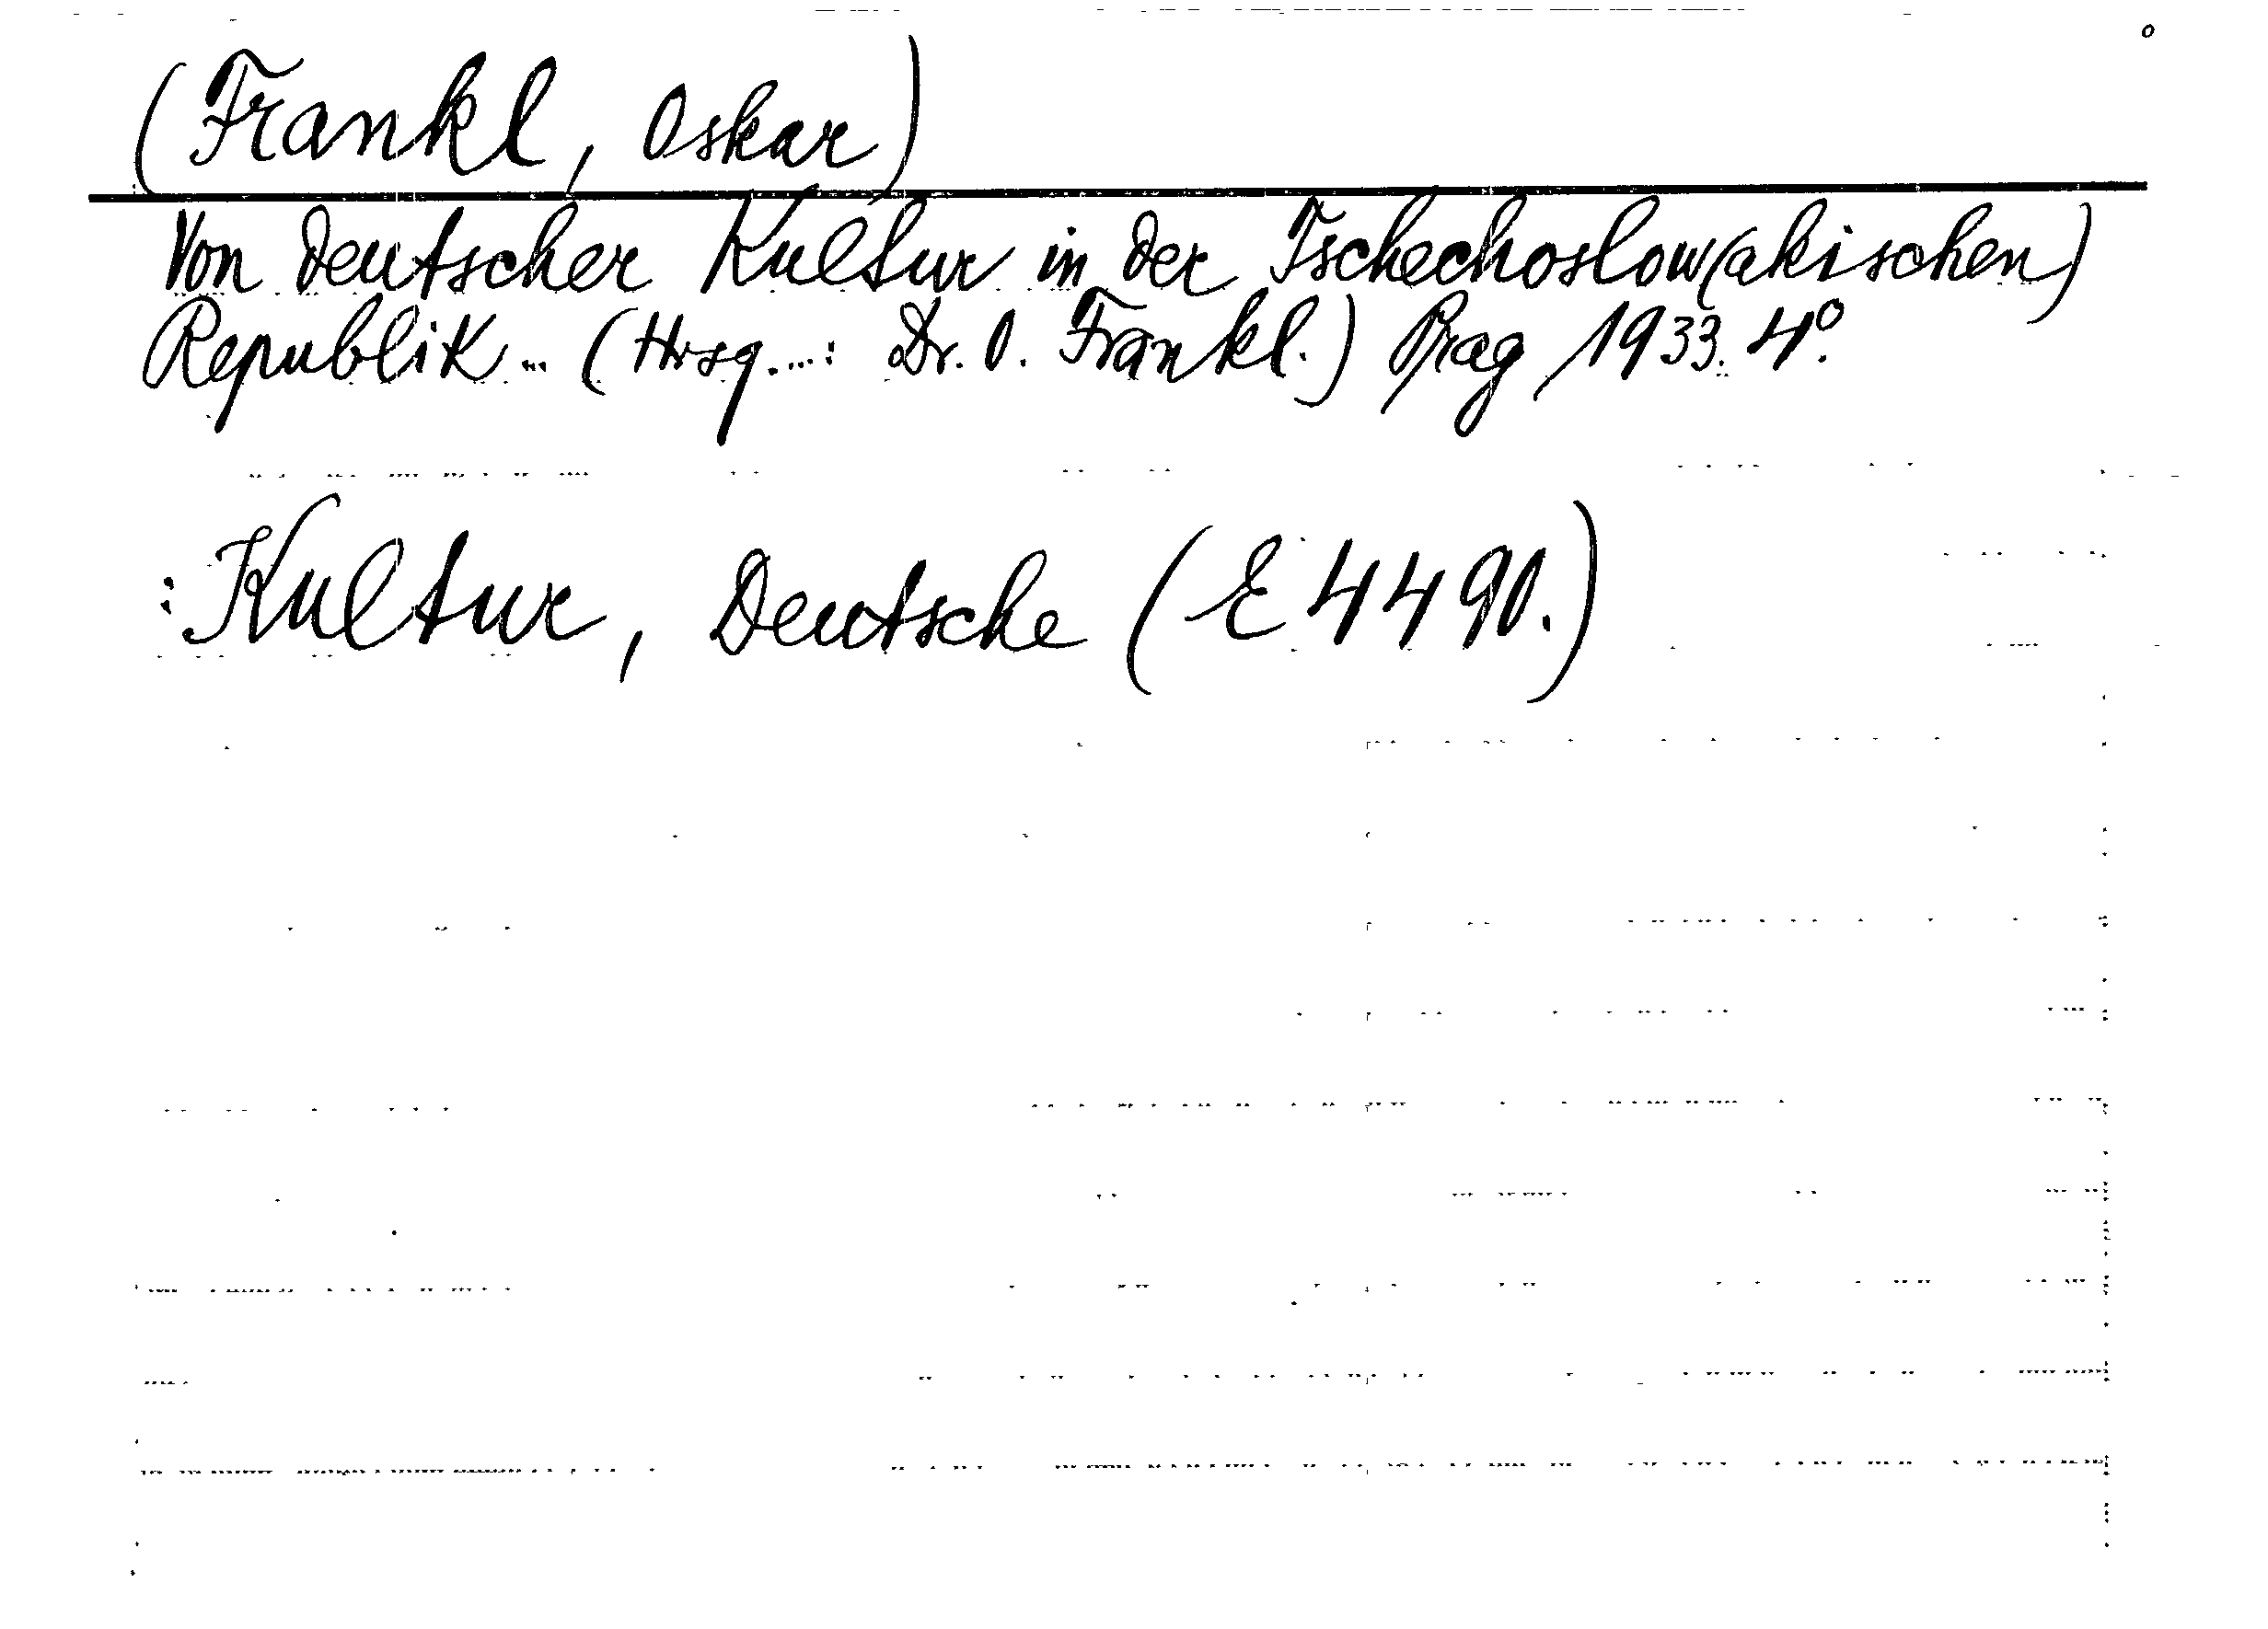 (Frankl, Oskar)
Von deutscher Kultur in der Tschechoslow(akischen)
Republik... (Hrsg....: Dr. O. Frankl.) Prag, 1933. 4°.
: Kultur, Deutsche (E 4490.)